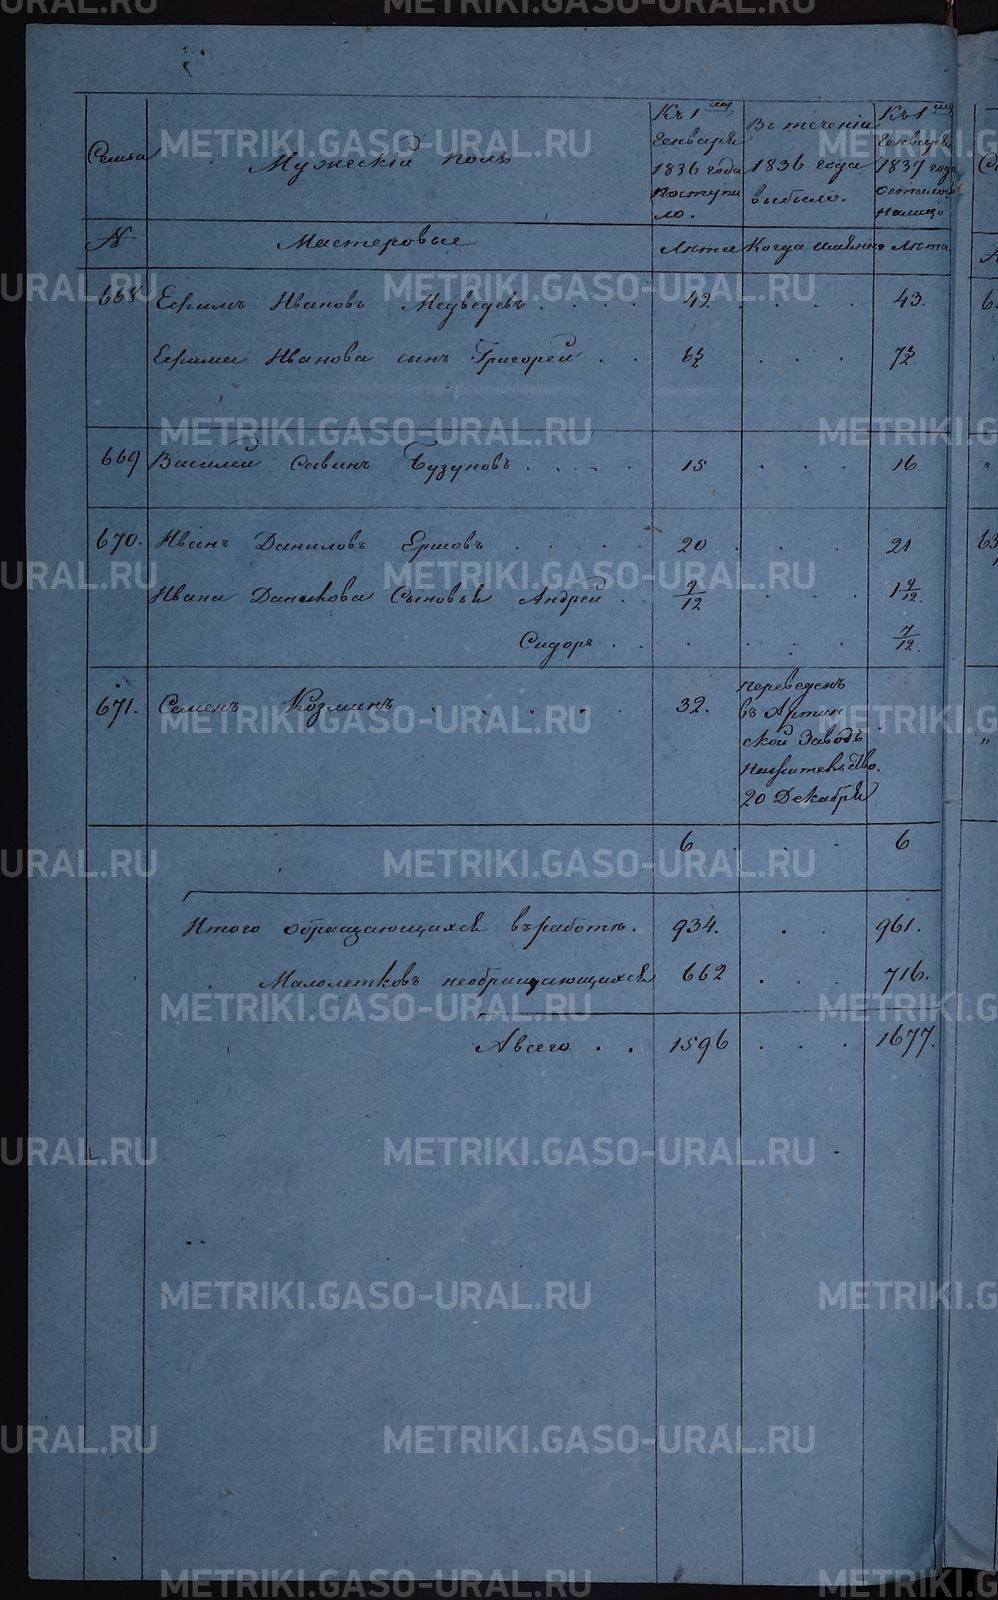 Семьи
Мужеский полъ
Къ 1му Генваря 1836 года поступило.
Въ теченіи 1836 года выбыло.
Къ 1му Генваря 1837 года осталось налицо
№ Мастеровые Лѣта Когда именно Лѣта
668 Ефримъ Ивановъ Медведевъ . . . . 42 . . . 43.
Ефрима Иванова сынъ Григорей . . 6½ . . . 7½.
669 Василей Савинъ Бузуновъ . . . . . 15 . . . 16
670. Иванъ Даниловъ Ершовъ . . . . 20 . . . 21
Ивана Данилова Сыновья Андрей . . 9/12 . . . . 1 9/12.
Сидоръ . . . . . . 7/12.
671. Семенъ Козминъ . . . . . . 32.
переведенъ
въ Артин
ской Заводъ
нажительство.
20 Декабря
6 . . . 6
Итого обращающихся въработѣ. 934. . . 961.
Малолетковъ необращающихся 662 . . . 716.
Авсего . . 1596 . . . 1677.
METRIKI.GASO-URAL.RU